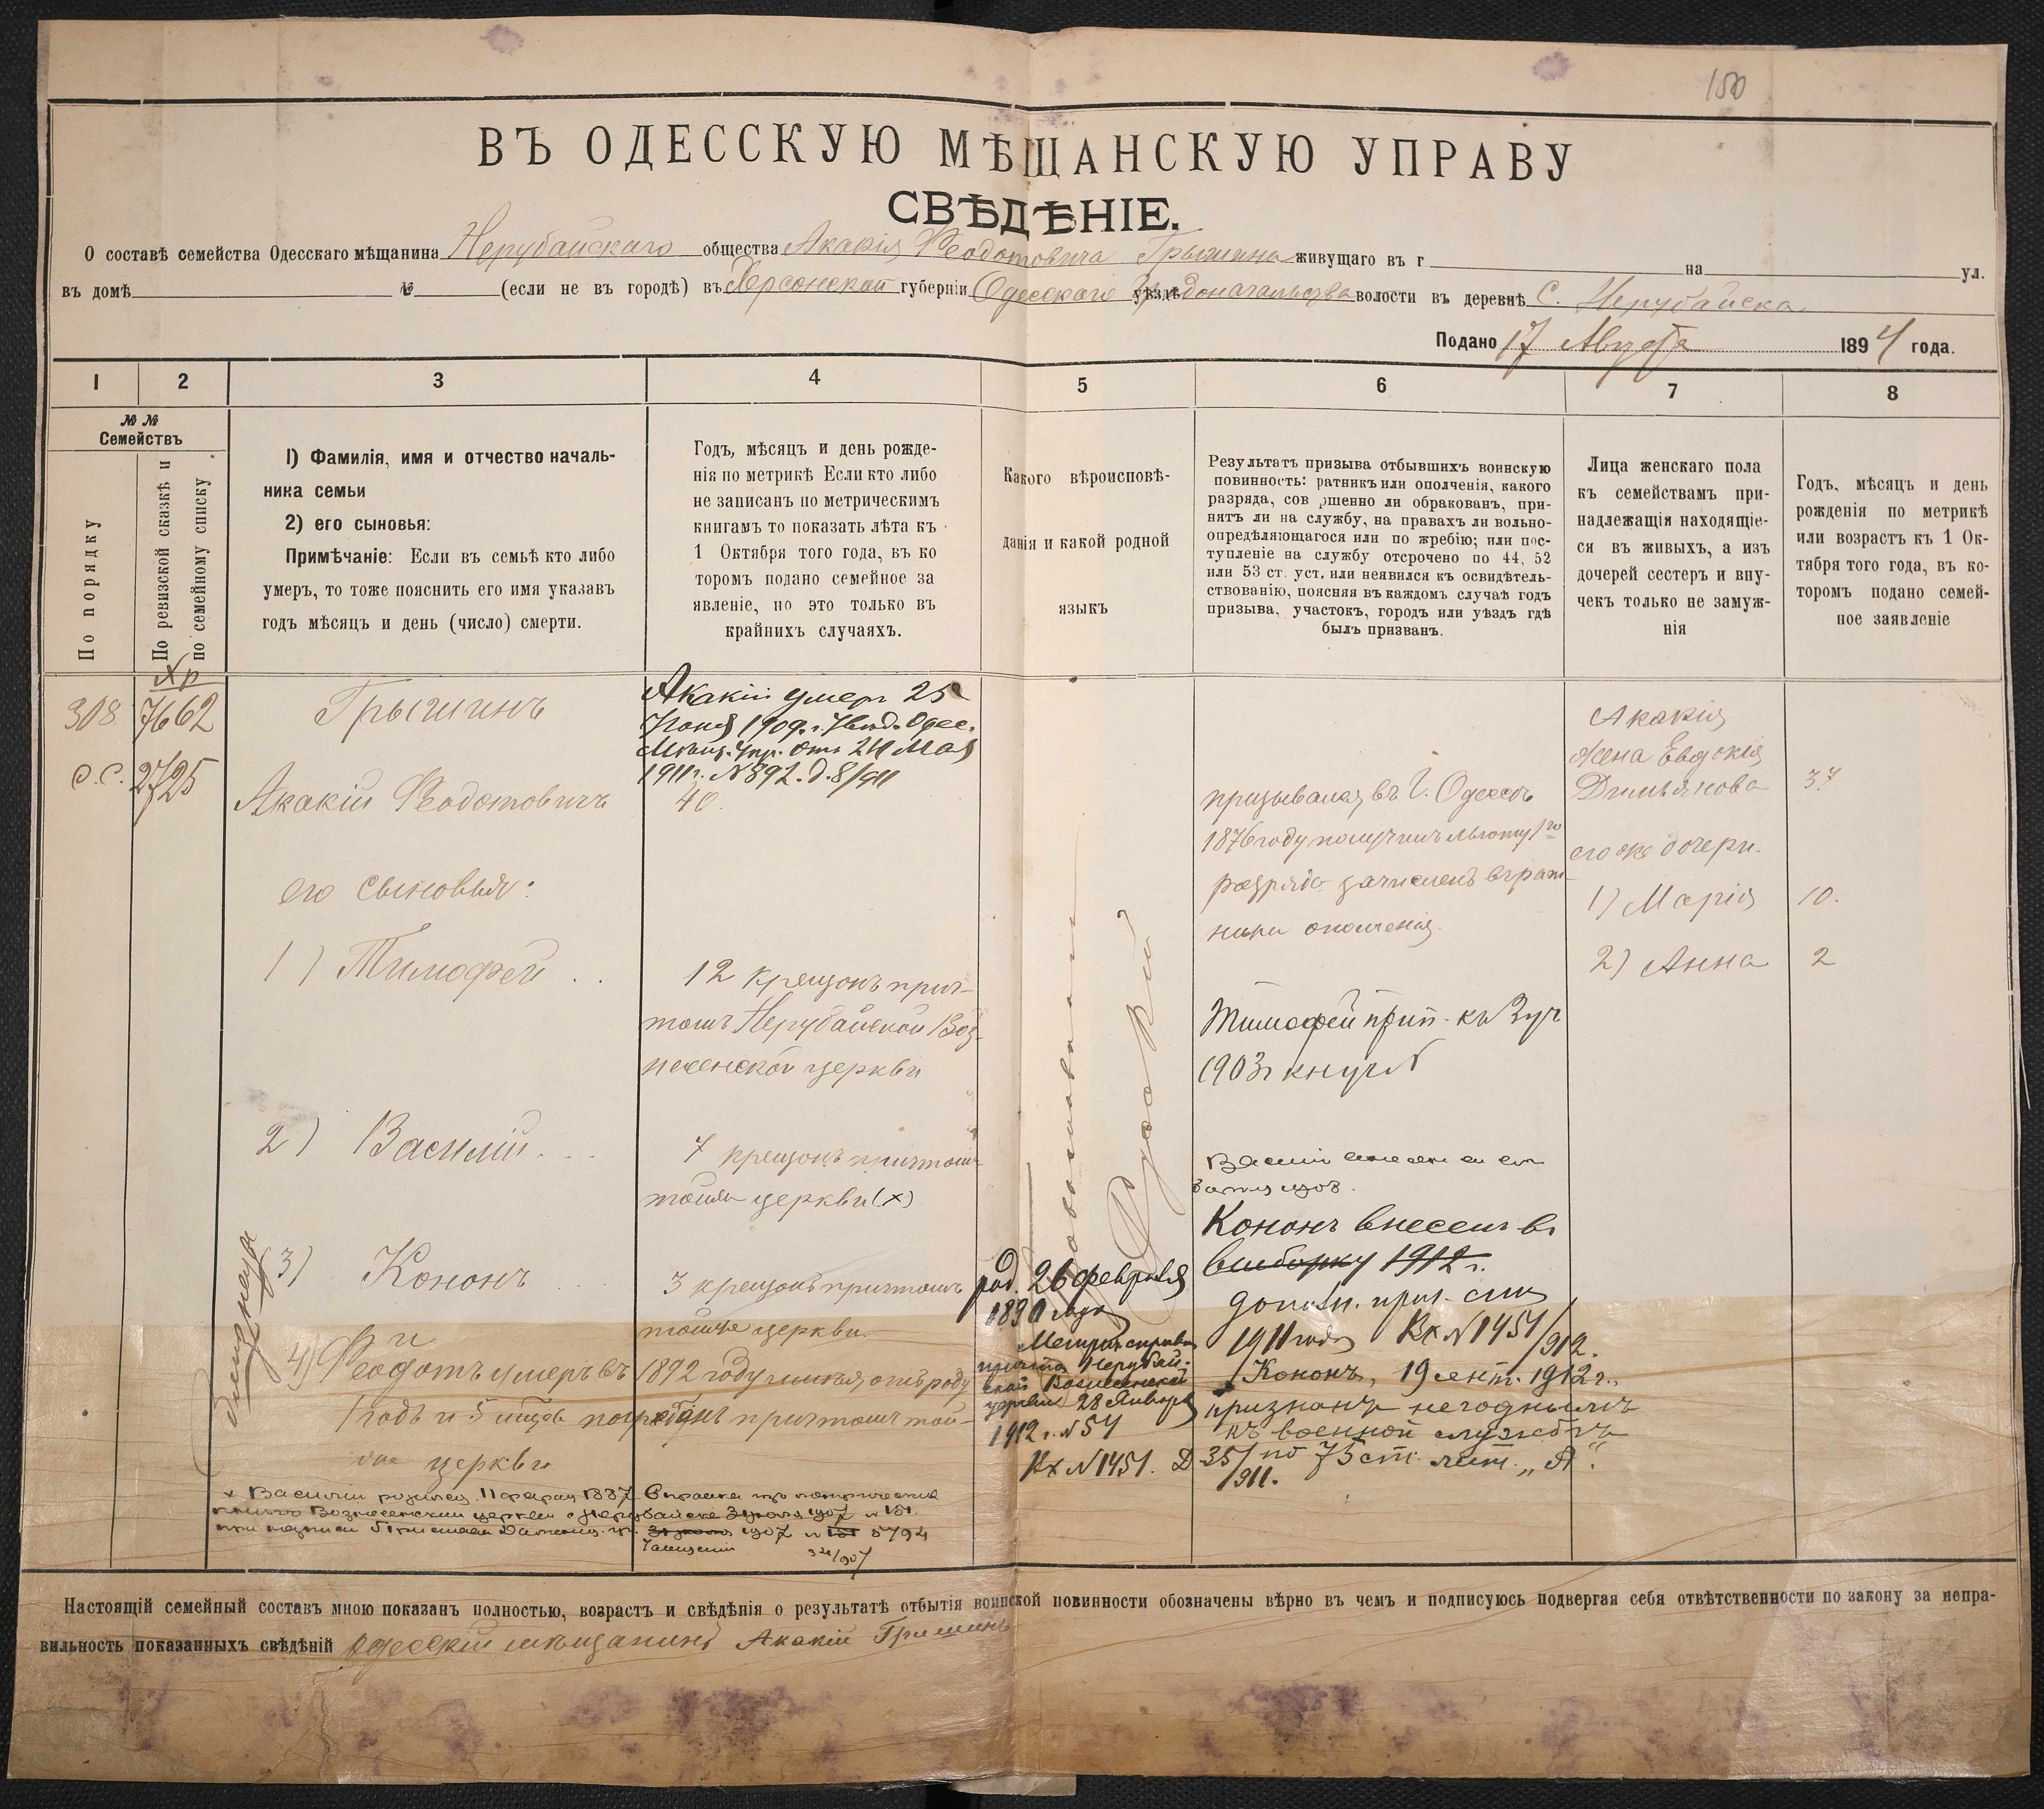 150
ВЪ ОДЕССКУЮ МѢЩАНСКУЮ УПРАВУ
СВѢДѢНІЕ.
О составѣ семейства Одесскаго мѣщанина Нерубайскаго общества Акакія Феодотовича Грышина живущаго въ г на ул.
въ домѣ № (если не въ городѣ) въ Херсонской губерніи Одесскаго уѣзда Градоначальства волости въ деревнѣ С. Нерубайска
Подано 17 Августа 1894 года.
1 2 3 4 5 6 7 8
№ №
Семействъ
По порядку
По ревизской сказкѣ и
по семейному списку
I) Фамилія, имя и отчество началь-
ника семьи
2) его сыновья:
Примѣчаніе: Если въ семьѣ кто либо
умеръ, то тоже пояснить его имя указавъ
годъ мѣсяцъ и день (число) смерти.
Годъ, мѣсяцъ и день рожде-
нія по метрикѣ Если кто либо
не записанъ по метрическимъ
книгамъ то показать лѣта къ
1 Октября того года, въ ко
торомъ подано семейное за
явленіе, но это только въ
крайнихъ случаяхъ.
Какого вѣроисповѣ-
данія и какой родной
языкъ
Результатъ призыва отбывшихъ воинскую
повинность: ратникъ или ополченія, какого
разряда, сов ршенно ли обракованъ, при-
нятъ ли на службу, на правахъ ли вольно-
опредѣляющагося или по жребію; или пос-
тупленіе на службу отсрочено по 44, 52
или 53 ст. уст. или неявился къ освидѣтель-
ствованію, поясняя въ каждомъ случаѣ годъ
призыва, участокъ, городъ или уѣздъ гдѣ
былъ призванъ.
Лица женскаго пола
къ семействамъ при-
надлежащія находящіе-
ся въ живыхъ, а изъ
дочерей сестеръ и вну-
чекъ только не замуж-
нія
Годъ, мѣсяцъ и день
рожденія по метрикѣ
или возрастъ къ 1 Ок-
тября того года, въ ко-
торомъ подано семей-
ное заявленіе
Хр
308 7662
О.С. 2725
Грышинъ
Акакій Феодотовичъ
его сыновья:
1) Тимофей
2) Василій
3) Кононъ
4) Феодотъ умеръ въ 1892 году имѣя отъ роду
1 годъ и 5 мѣцев погребёнъ причтомъ той-
же церкви
х Василій родился 11 февраля 1887
Вознесенской церкви с Нерубайска 3 1907 № 151.
1907 № 151 5794
34/907
Акакій умер 25
Іюня 1909. г. Увѣд. Одес.
Мѣщ. Упр. отъ 24 Мая
1911 г. № 892. д. 8/911
40.
12 крещонъ прич-
томъ Нерубайской Воз-
несенской церкви
7 крещонъ причтомъ
тойже церкви (х)
3 крещонъ причтомъ
тойже церкви.
Православный
Русскій
род. 26 февраля
1890 года
Метрич. справка
причта Нерубай-
ской Вознесенской
церкви 28 Января
1912 г. № 54
Вх № 1451. Д 35/911.
призывался въ Г. Одессѣ
1876 году получилъ льготу 1го
разряда зачисленъ въ рат-
ники ополченія.
Тимофей прип. къ
1903 г
Василій
Кононъ внесенъ въ
выборку 1912 г.
дополн. приз. спис
1911 года Вх № 1451/912.
Кононъ, 19 сент. 1912 г.,
признанъ негоднымъ
къ военной службѣ
по 75 ст. лит. „А“.
Акакія
жена Евдокія
Дмитьянова 37
его же дочери.
1) Марія 10.
2) Анна 2
Настоящій семейный составъ мною показанъ полностью, возрастъ и свѣдѣнія о результатѣ отбытія воинской повинности обозначены вѣрно въ чемъ и подписуюсь подвергая себя отвѣтственности по закону за непра-
вильность показанныхъ свѣдѣній одесскій мѣщанинъ Акакій Гришинъ